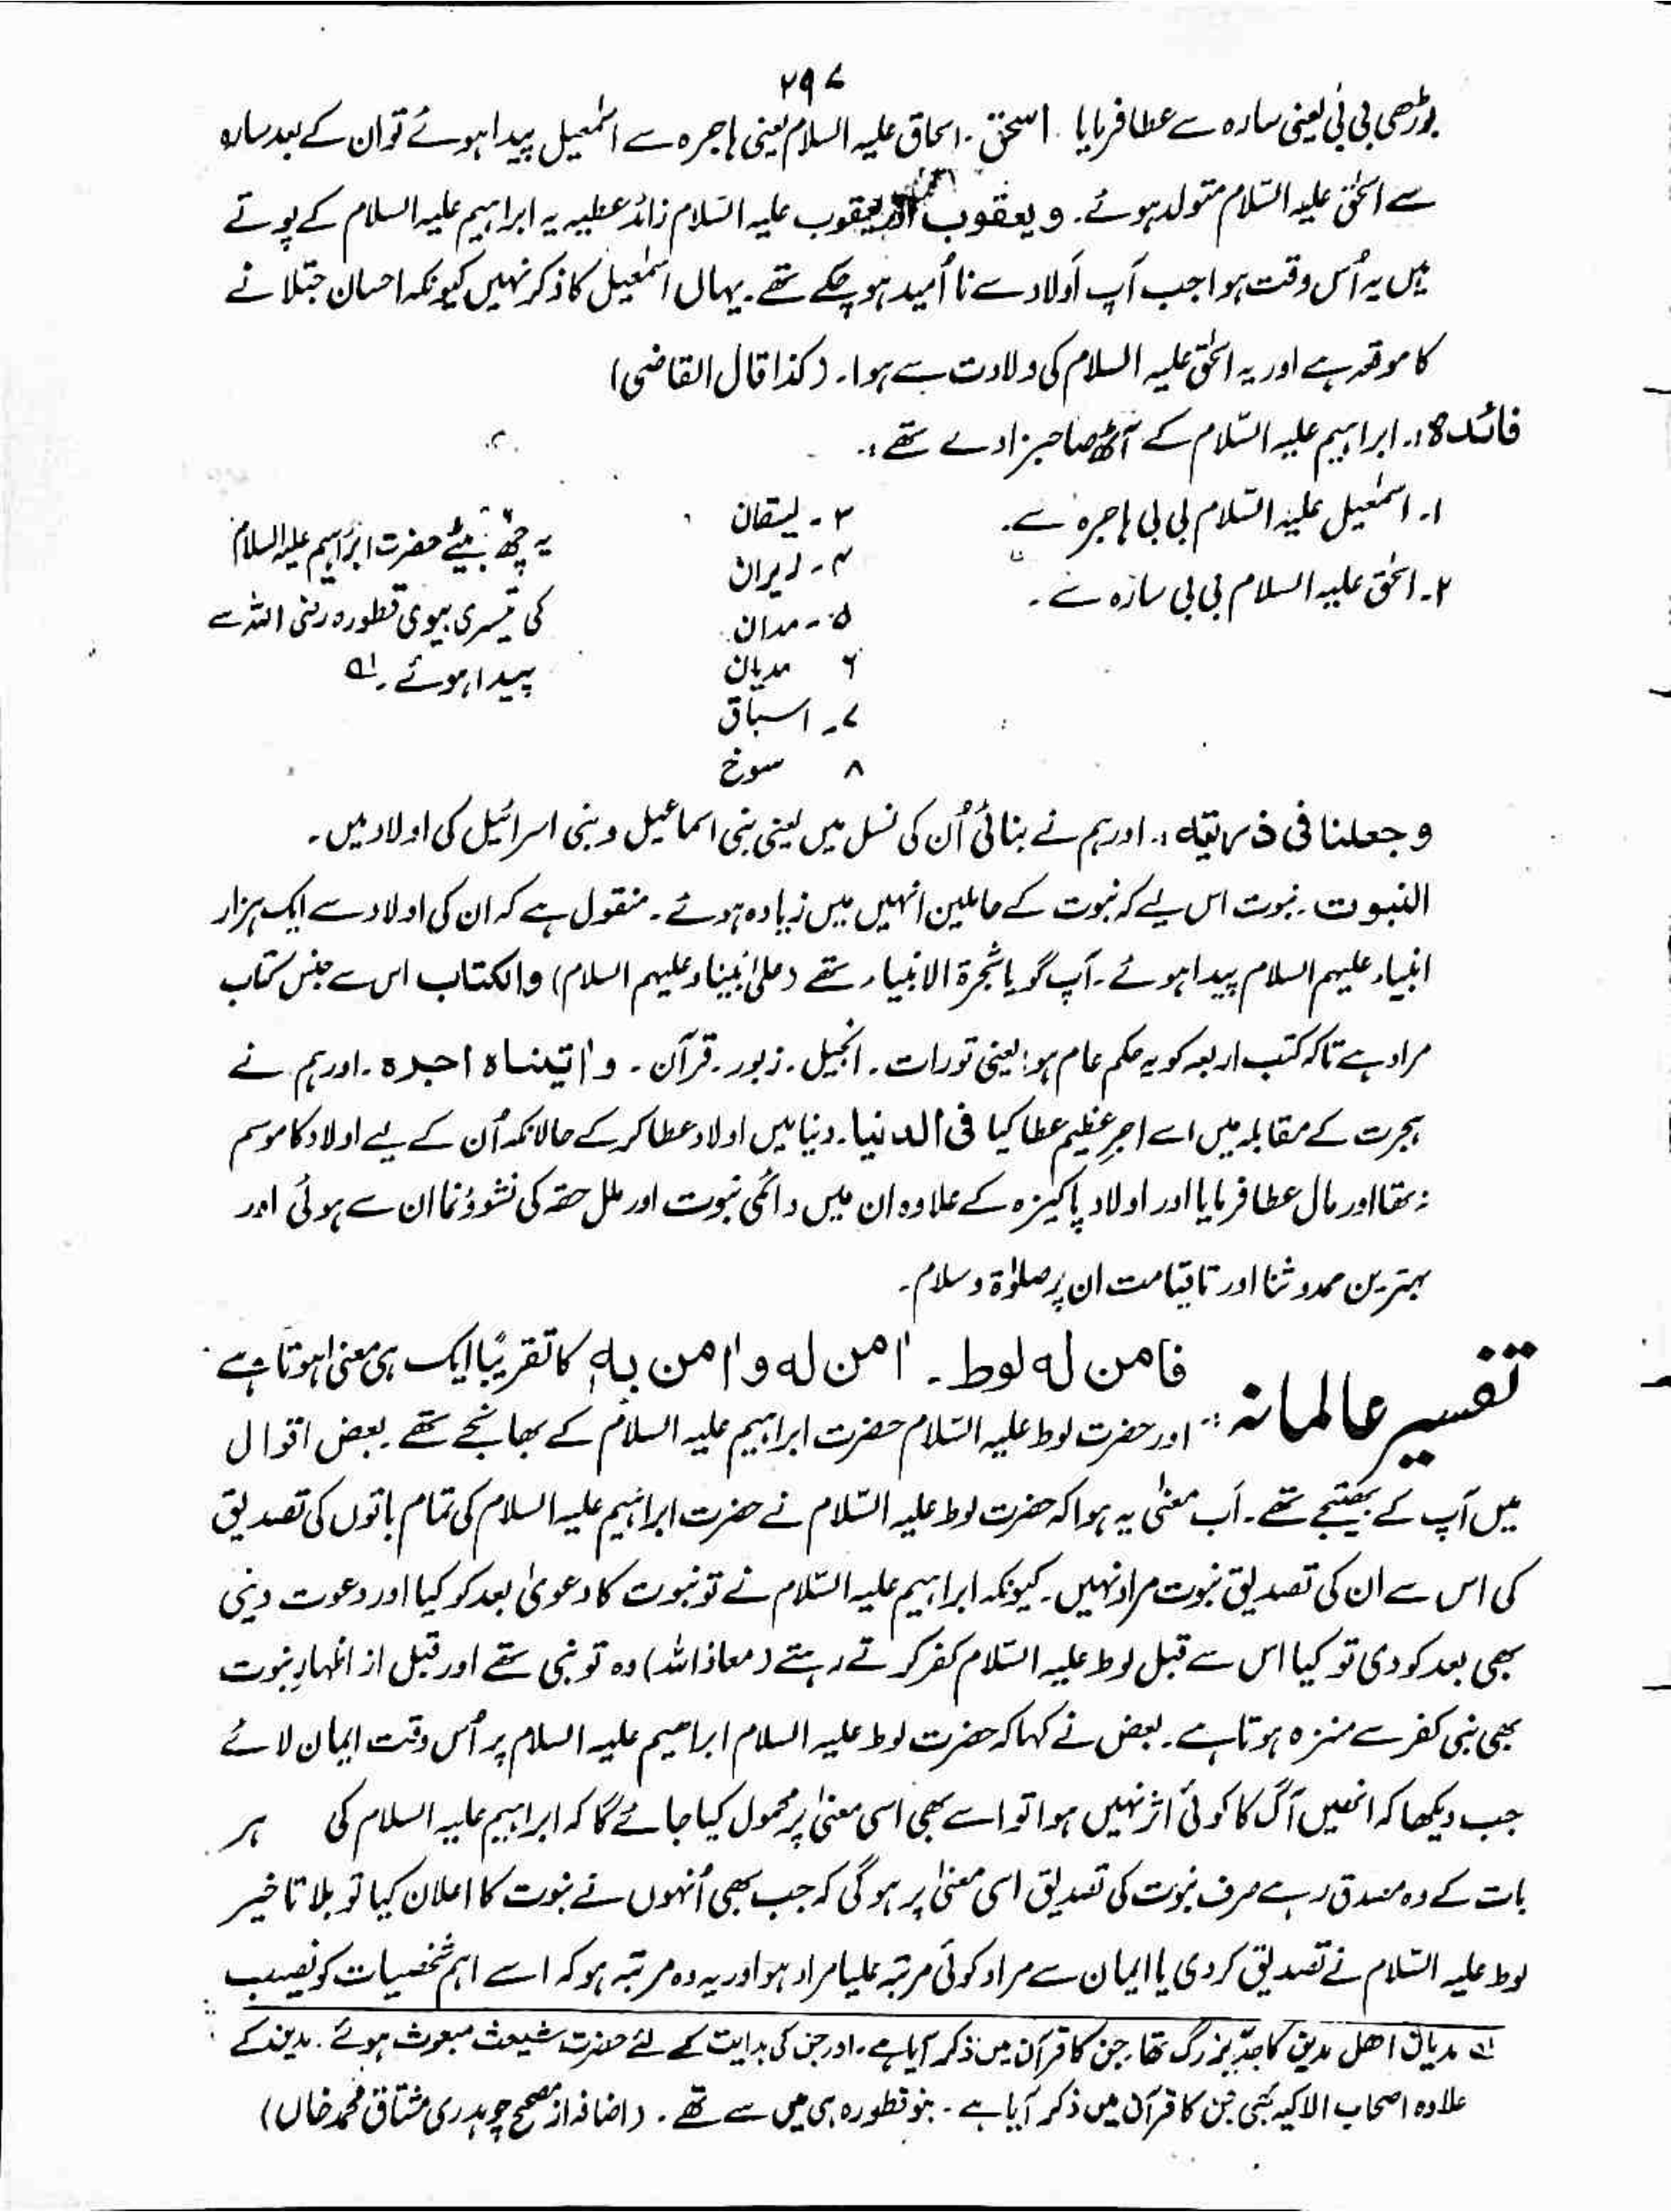 ۲۹۷
بوڑھی بی بی یعنی سارہ سے عطا فرمایا۔ اسحٰق۔ اسحاق علیہ السلام یعنی ہاجرہ سے اسمٰعیل پیدا ہوئے تو ان کے بعد سارہ
سے اسحٰق علیہ السّلام متولد ہوئے۔ و یعقوب اور یعقوب علیہ السّلام زائد عطیہ یہ ابراہیم علیہ السلام کے پوتے
ہیں یہ اُس وقت ہوا جب آپ اَولاد سے نا اُمید ہو چکے تھے۔ یہاں اسمٰعیل کا ذکر نہیں کیونکہ احسان جتلانے
کا موقعہ ہے اور یہ اسحٰق علیہ السلام کی ولادت سے ہوا۔ (کذا قال القاضی)
فائدہ:۔ ابراہیم علیہ السّلام کے آٹھ صاحبزادے تھے:۔
۱۔ اسمٰعیل علیہ السّلام بی بی ہاجرہ سے۔
۲۔ اسحٰق علیہ السلام بی بی سارہ سے۔
۳۔ یسقان
۴۔ زیران
۵۔ مدان
۶ مدیان
۷۔ اسباق
۸ سوخ
یہ چھ بیٹے حضرت ابراہیم علیہ السلام
کی تیسری بیوی قطورہ رضی اللہ سے
پیدا ہوئے۔ لہ
و جعلنا فی ذریتہ:۔ اور ہم نے بنائی اُن کی نسل میں یعنی بنی اسماعیل و بنی اسرائیل کی اولاد میں۔
النبوت۔ نبوت اس لیے کہ نبوت کے حاملین انہیں میں زیادہ ہوئے۔ منقول ہے کہ ان کی اولاد سے ایک ہزار
انبیاء علیہم السلام پیدا ہوئے۔ آپ گویا شجرۃ الانبیاء تھے (علیٰ نبینا و علیہم السلام) والکتاب اس سے جنس کتاب
مراد ہے تاکہ کتب اربعہ کو یہ حکم عام ہو؛ یعنی تورات۔ انجیل۔ زبور۔ قرآن۔ واٰتینٰاہ اجرہ۔ اور ہم نے
ہجرت کے مقابلہ میں اسے اجرِ عظیم عطا کیا فی الدنیا۔ دنیا میں اولاد عطا کر کے حالانکہ اُن کے لیے اولاد کا موسم
نہ تھا اور مال عطا فرمایا اور اولاد پاکیزہ کے علاوہ ان میں دائمی نبوت اور ملل حقہ کی نشوونما ان سے ہوئی اور
بہترین مدوثنا اور تا قیامت ان پر صلوٰۃ وسلام۔
تفسیر عالمانہ:۔ فامن لہ لوط۔ اٰمن لہ و اٰمن بہٖ کا تقریبًا ایک ہی معنیٰ ہوتا ہے
اور حضرت لوط علیہ السّلام حضرت ابراہیم علیہ السلام کے بھانجے تھے۔ بعض اقوال
میں آپ کے بھتیجے تھے۔ اَب معنیٰ یہ ہوا کہ حضرت لوط علیہ السّلام نے حضرت ابراہیم علیہ السلام کی تمام باتوں کی تصدیق
کی اس سے ان کی تصدیق نبوت مراد نہیں۔ کیونکہ ابراہیم علیہ السّلام نے تو نبوت کا دعویٰ بعد کو کیا اور دعوت دینی
بھی بعد کو دی تو کیا اس سے قبل لوط علیہ السّلام کفر کرتے رہتے (معاذ اللہ) وہ تو نبی تھے اور قبل از اظہارِ نبوت
بھی نبی کفر سے منزہ ہوتا ہے۔ بعض نے کہا کہ حضرت لوط علیہ السلام ابراھیم علیہ السلام پر اُس وقت ایمان لائے
جب دیکھا کہ انھیں آگ کا کوئی اثر نہیں ہوا تو اسے بھی اسی معنیٰ پر محمول کیا جائے گا کہ ابراہیم علیہ السلام کی ہر
بات کے وہ مصدق رہے صرف نبوت کی تصدیق اسی معنیٰ پر ہو گی کہ جب بھی اُنہوں نے نبوت کا اعلان کیا تو بلا تاخیر
لوط علیہ السّلام نے تصدیق کر دی یا ایمان سے مراد کوئی مرتبہ علیا مراد ہو اور یہ وہ مرتبہ ہو کہ اسے اہم شخصیات کو نصیب
لہ مدیان اھل مدین کا جدّ بزرگ تھا۔ جن کا قرآن میں ذکر آیا ہے۔ اور جن کی ہدایت کے لئے حضرت شیعث مبعوث ہوئے۔ مدین کے
علاوہ اصحاب الاکیہ بھی جن کا قرآن میں ذکر آیا ہے۔ بنو قطورہ ہی میں سے تھے۔ (اضافہ از مصحح چوہدری مشتاق محمد خاں)